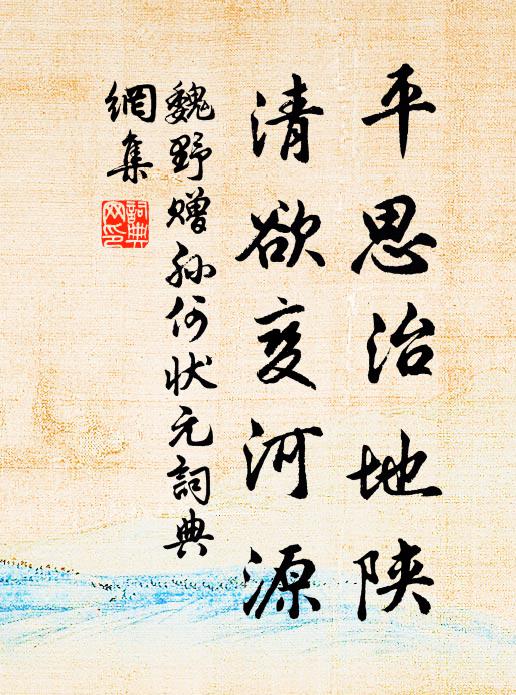 平思治地陕
清欲变河源
魏野赠孙何状元詞典
網集
詞典
网印